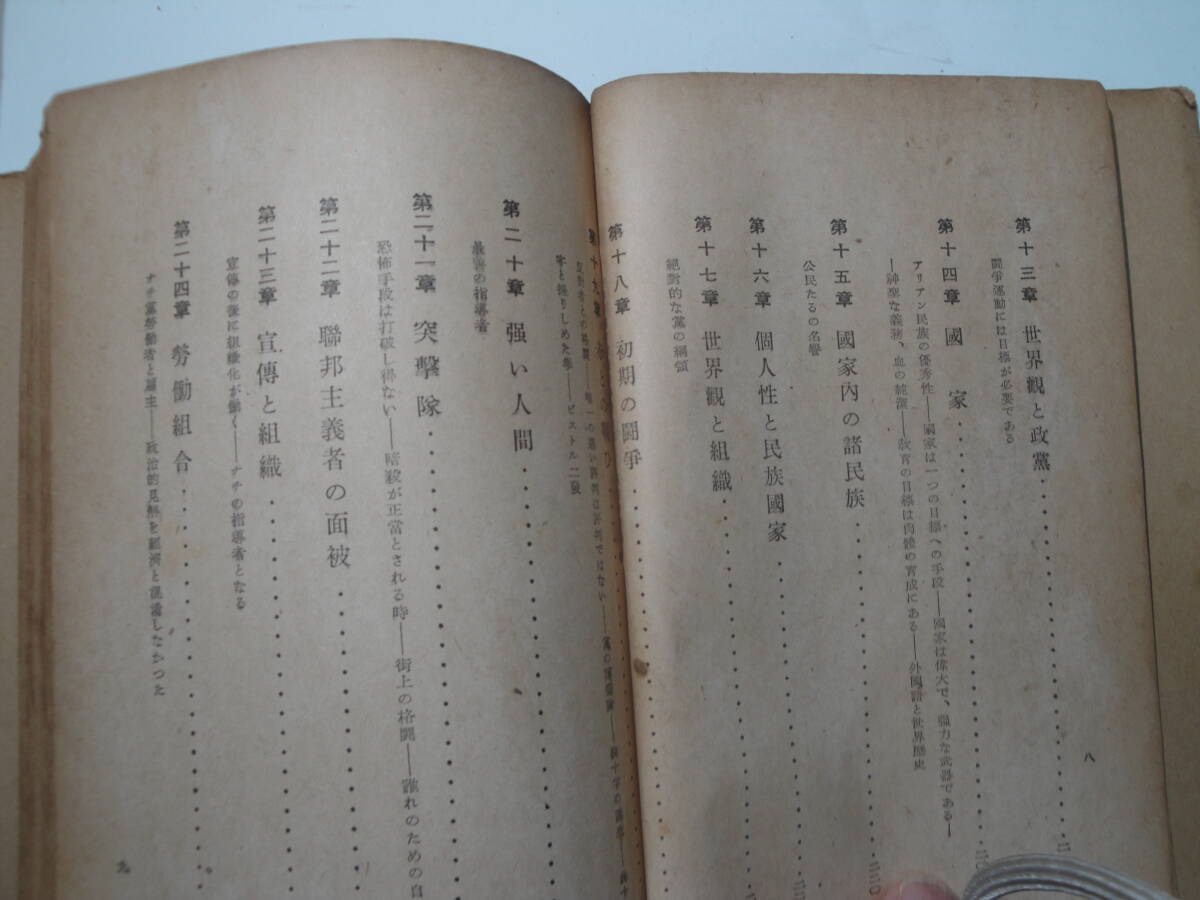 第十三章 世界観と政黨
闘爭運動には目標が必要である
第十四章 國家
アリアン民族の優秀性——國家は一つの目標への手段——國家は偉大で、強力な武器である—
—神聖な義務、血の純潔——敎育の目標は肉體の育成にある——外國語と世界歴史
第十五章 國家內の諸民族
公民たるの名譽
第十六章 個人性と民族國家
第十七章 世界観と組織
絶對的な黨の綱領
第十八章 初期の闘爭
八
第十九章
ピストル二發
第二十章 强い人間
最善の指導者
第二十一章 突擊隊
恐怖手段は打破し得ない——暗殺が正當とされる時——街上の格闘——誰れのための自
第二十二章 聯邦主義者の面被
第二十三章 宣傳と組織
宣傳の後に組織化が働く——ナチの指導者となる
第二十四章 勞働組合
ナチ黨勞働者と雇主——政治的見解を經濟と混淆しなかつた
九